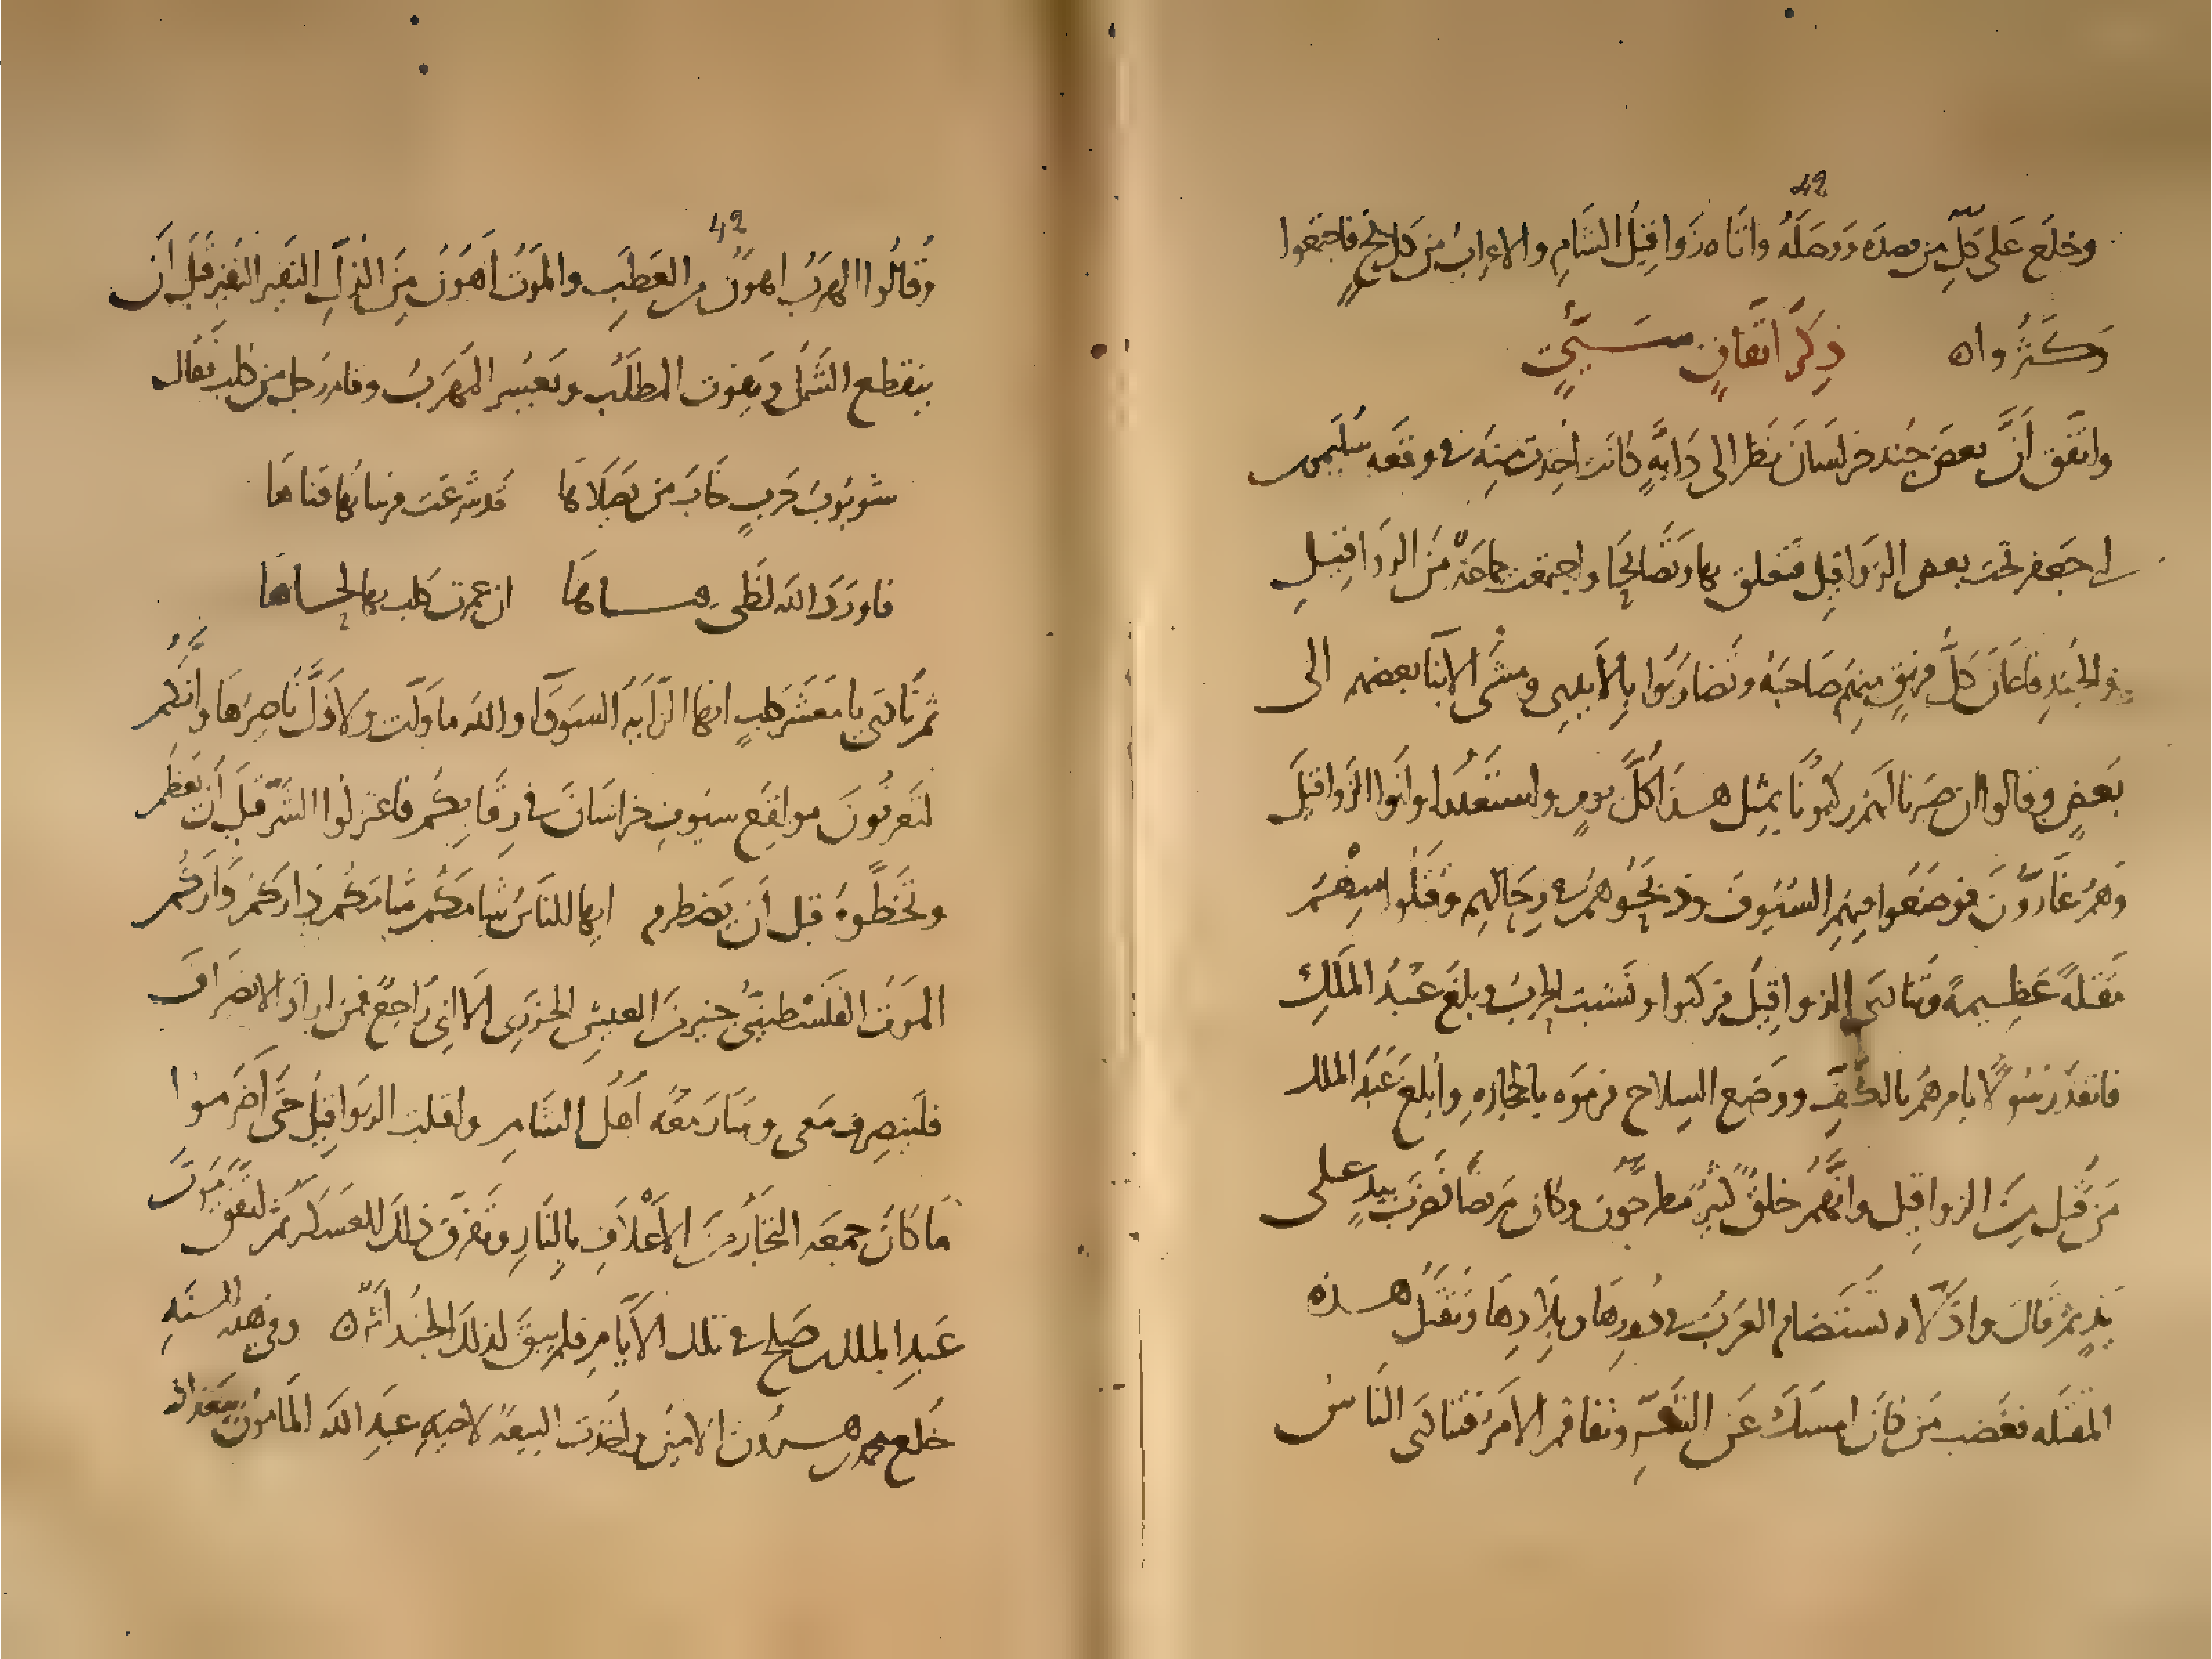 42
وخلَع عَلى كلّ من قصدَه ووصَلَهُ واتَاه زَوَاقِيلُ الشَامِ والاعرابُ من كل فجٍ فاجتمعوا
وَكَثُرُوا ه ذِكرُ اتفاقٍ سَيِّئٍ
واتّفق أنَّ بعضَ جُند خراسَانَ نَظر الى دَابّةٍ كانت أُخِذت منِه في وقعَه سُليمن
ابن ابى جَعفر تحت بعض الزوَاقِيل فتعلق بها وتصَايحَا واجتمعت جماعَةْ مَن الزوَاقِيلِ
والجُندِ فاعَانَ كلُّ فريقٍ منِهم صَاحبَهُ وتضارَبُوا بِالأَيدِي ومشَى الابنا بعضهم الى
بَعضٍ وقالوا ان صَبَرنا لهم ركبُونَا بمثِل هذَا كُلَّ يومٍ واستَعدُّوا واتَوا الزَواقيلَ
وَهُمْ غَارّوُنَ فوضَعُوا فيِهِم السُيُوفَ وذبحَوُهم في رِحَالهِم وقَتَلُوا منِهْم
مَقتَلةً عَظيمةً وتنَادَى الزواقِيلُ فركبوا ونَشبت الحربُ وبلغَ عَبْدَ المَلكِ
فانفَذ رَسُولًا يامرهُم بالكَفِّ ووضَع السِلاح فرمَوه بالحجارهِ وأُبلغَ عَبدُ الملك
مَن قُتِل مِن الزواقِيل وانّهُم خلقٌ كثيرٌ مطرحُونَ وكان مَريضًا فضرَبَ بيدٍ على
يَدٍ ثم قال واذُلّاه تُستَضام العَربُ في دُورِهَا وبلَادِهَا وتقتَلُ هذه
المقتَله فغَضب مَن كانَ امسَكَ عَن الشَرِّ وتفاقم الامَرُ فتنَادَى النَاسُ
42
وَقالُوا الهرَبُ اهوَنُ من العَطَبِ والموَتُ أَهوَنُ مِنَ الذلِّ النفير النفير قبلَ أن
ينقطع الشَملُ ويفوت المطلَبُ ويَعسُر المَهرَبُ وقام رَجل من كلب فقال
شوبوبُ حَربٍ خَابَ من يَصلَاهَا قَد شرعَت فرسانُها قنَاهَا
فاورَدَ الله لَظَى هساهَا ان عمرت كلب بها لحاهَا
ثُم نَادَى يا مَعشَر كلبٍ انها الرَايةُ السَودَآ والله ما ولّت ولا ذَلَّ نَاصِرُهَا وانكم
لتَعرفُونَ مواقعَ سيُوفِ خراسَانَ في رِقَابكُم فاعتَزلوا الشَرّ قبلَ أن يَعظم
وتخَطّوهُ قبل أن يَضطرم ايها الناسُ شامَكُم شامَكُم دَارَكُم دَارَكُم
المَوتُ الفلَسْطينيُّ خير مَن العيشِ الجزرِى الا انِى رَاجعٌ فمن ارادَ الانصرَافَ
فليَنصرِف مَعى وسَارَ مَعَه اَهلُ الشامِ واقبلت الزوَاقيلُ حتَّى أضرَموُا
مَا كانَ جمعَه التجَارُ مَن الأعْلاَفِ بالِنَارِ وتفرّقَ ذلك العسكر ثم اتفَق مَوتُ
عَبدِ الملك بن صَلح في تلك الأيَّامِ فلم يبقَ لذلكَ الجُند أثرٌ ه وفي هذه السَنَهِ
خَلع محمد بن هرونَ الامين واخذت البيعَةُ لاخيهِ عبدِ الله المَامونِ ببغدَاد